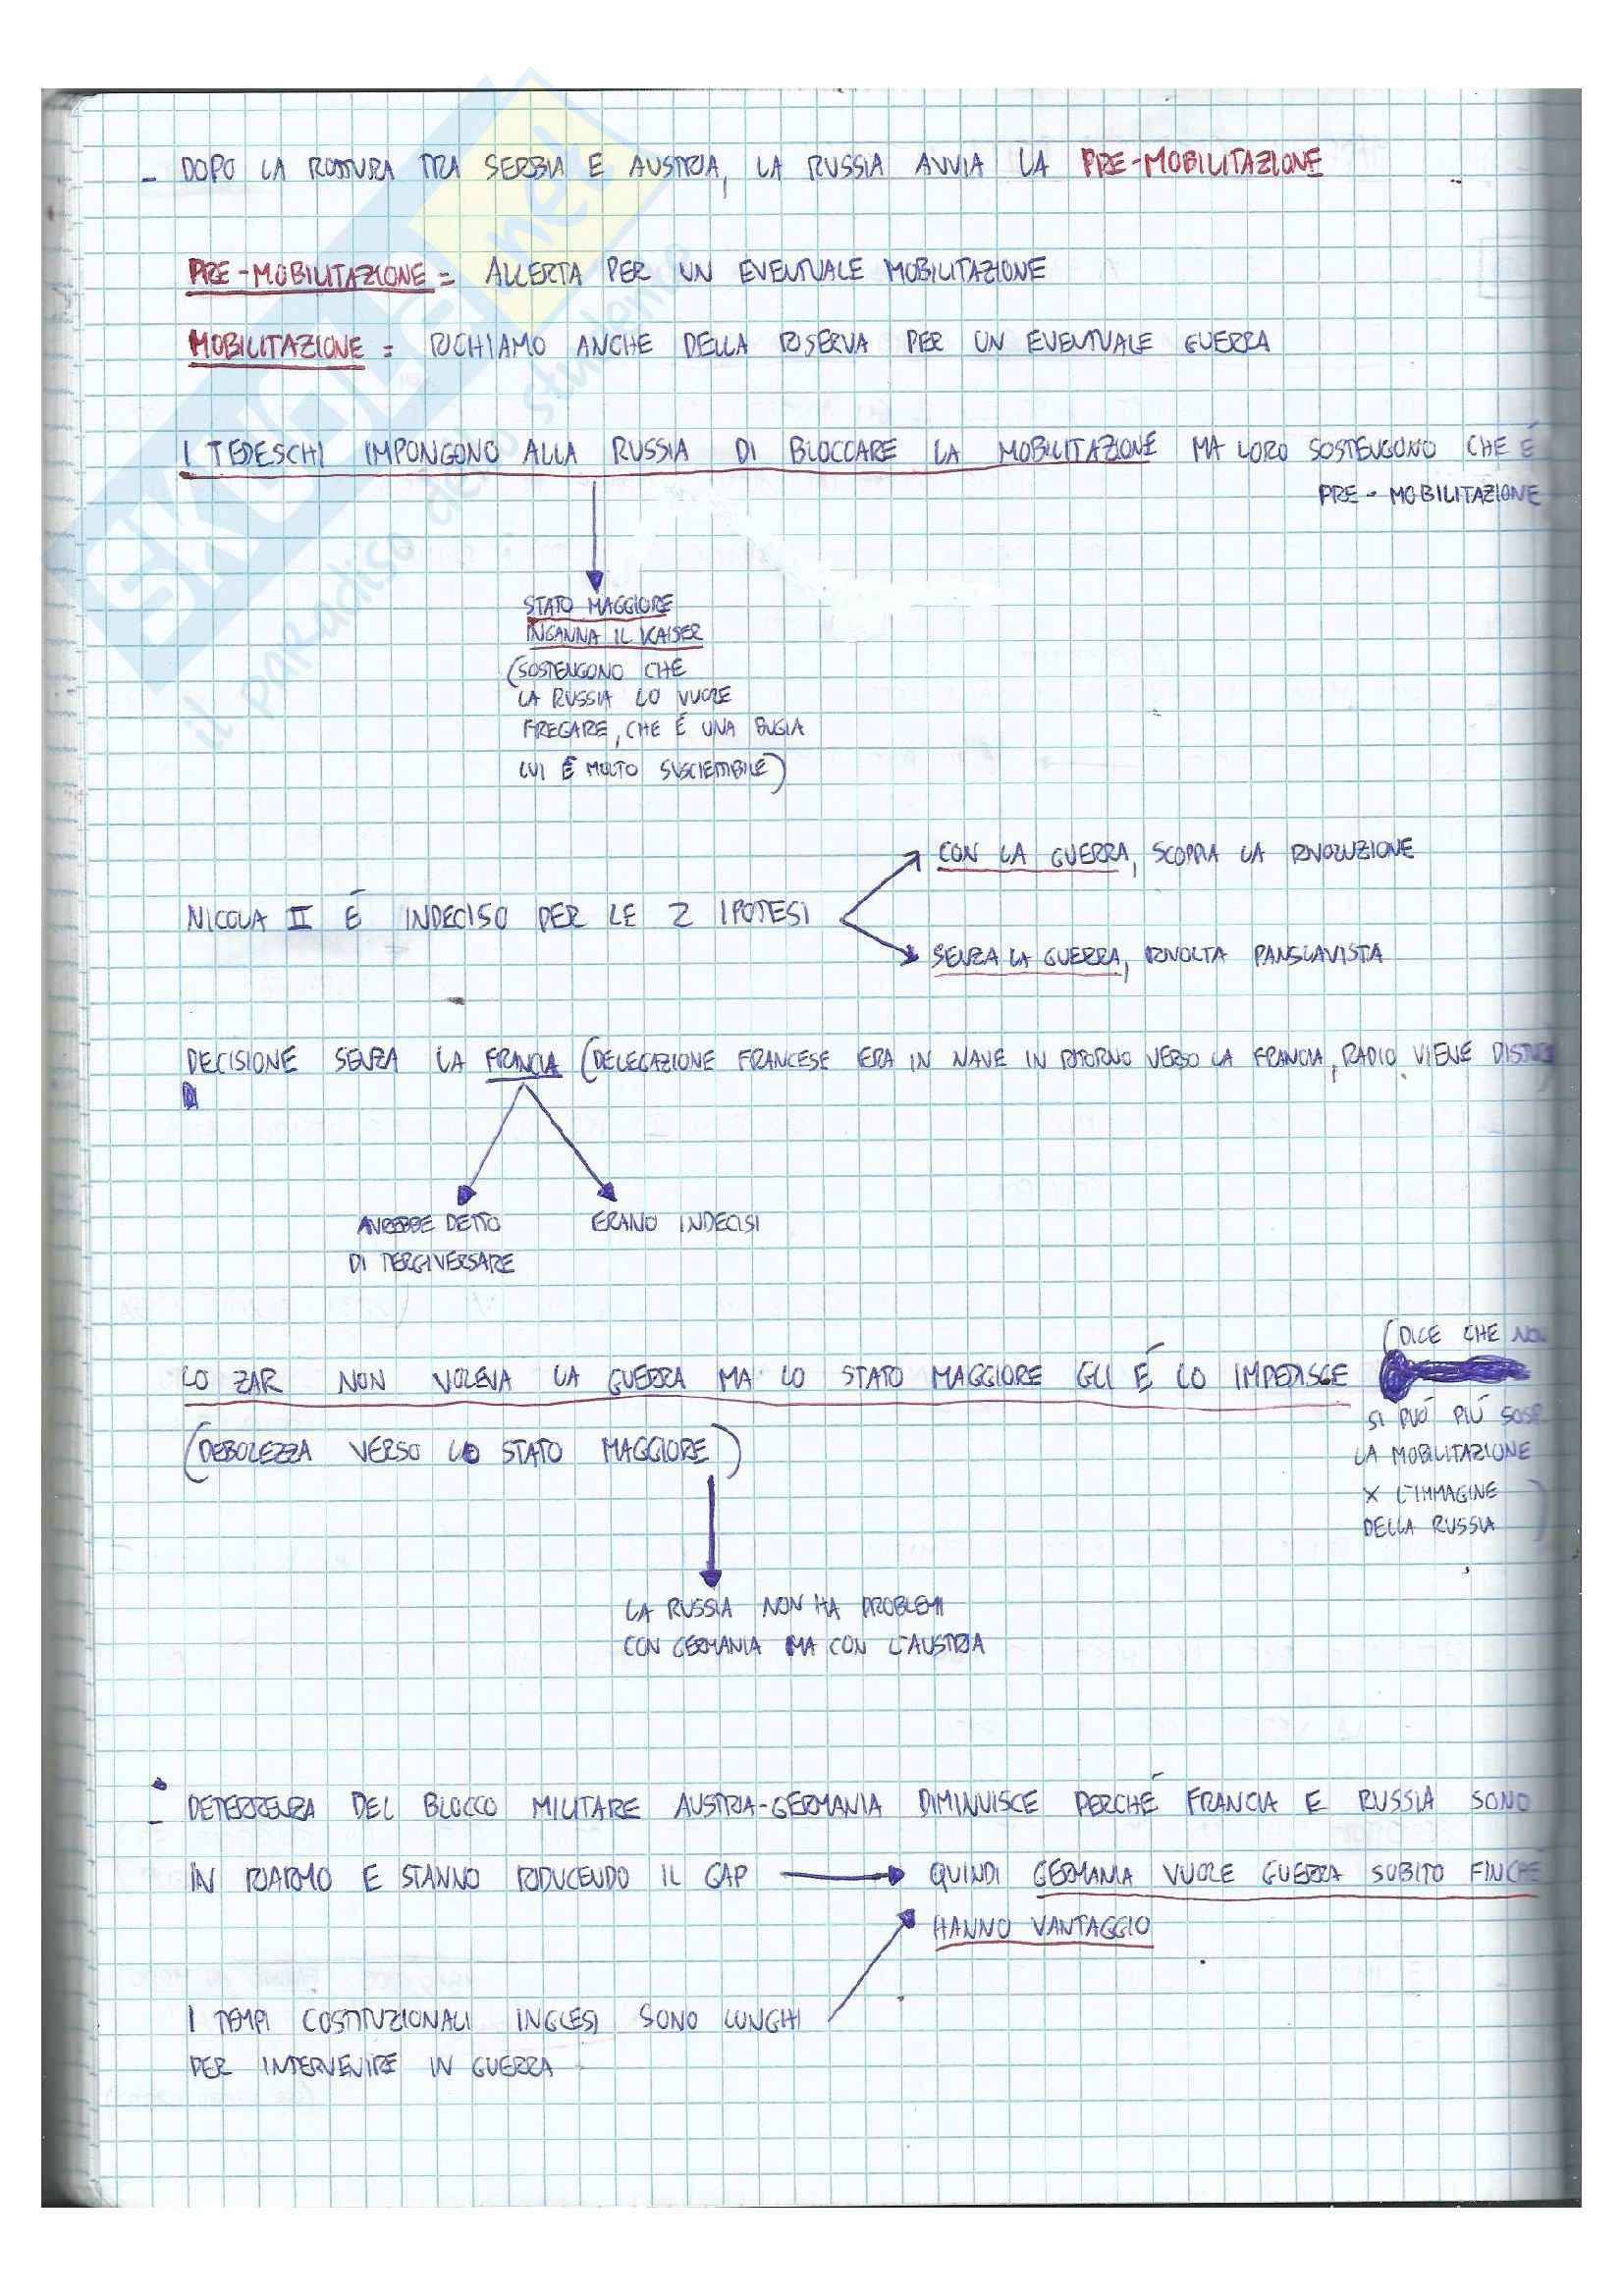 - DOPO LA ROTTURA TRA SERBIA E AUSTRIA, LA RUSSIA AVVIA LA PRE-MOBILITAZIONE
PRE-MOBILITAZIONE = ALLERTA PER UN EVENTUALE MOBILITAZIONE
MOBILITAZIONE = RICHIAMO ANCHE DELLA RISERVA PER UN EVENTUALE GUERRA
I TEDESCHI IMPONGONO ALLA RUSSIA DI BLOCCARE LA MOBILITAZIONE MA LORO SOSTENGONO CHE É
PRE-MOBILITAZIONE
STATO MAGGIORE
INGANNA IL KAISER
(SOSTENGONO CHE
LA RUSSIA LO VUOLE
FREGARE, CHE É UNA BUGIA
LUI É MOLTO)
CON LA GUERRA, SCOPPIA LA RIVOLUZIONE
NICOLA II É INDECISO PER LE 2 IPOTESI
SENZA LA GUERRA, RIVOLTA PANSLAVISTA
DECISIONE SENZA LA FRANCIA (DELEGAZIONE FRANCESE ERA IN NAVE IN RITORNO VERSO LA FRANCIA, RADIO VIENE
AVREBBE DETTO
DI TERGIVERSARE
ERANO INDECISI
(DICE CHE NON
LO ZAR NON VOLEVA LA GUERRA MA LO STATO MAGGIORE GLI É LO IMPEDISCE
SI PUÓ PIÚ
(DEBOLEZZA VERSO LO STATO MAGGIORE)
LA MOBILITAZIONE
X L'IMMAGINE
DELLA RUSSIA)
LA RUSSIA NON HA PROBLEMI
CON GERMANIA MA CON L'AUSTRIA
- DETERRENZA DEL BLOCCO MILITARE AUSTRIA-GERMANIA DIMINUISCE PERCHÉ FRANCIA E RUSSIA SONO
IN RIARMO E STANNO RIDUCENDO IL GAP → QUINDI GERMANIA VUOLE GUERRA SUBITO FINCHÉ
HANNO VANTAGGIO
I TEMPI COSTITUZIONALI INGLESI SONO LUNGHI
PER INTERVENIRE IN GUERRA
SKUOLA.net
il paradiso dello studente